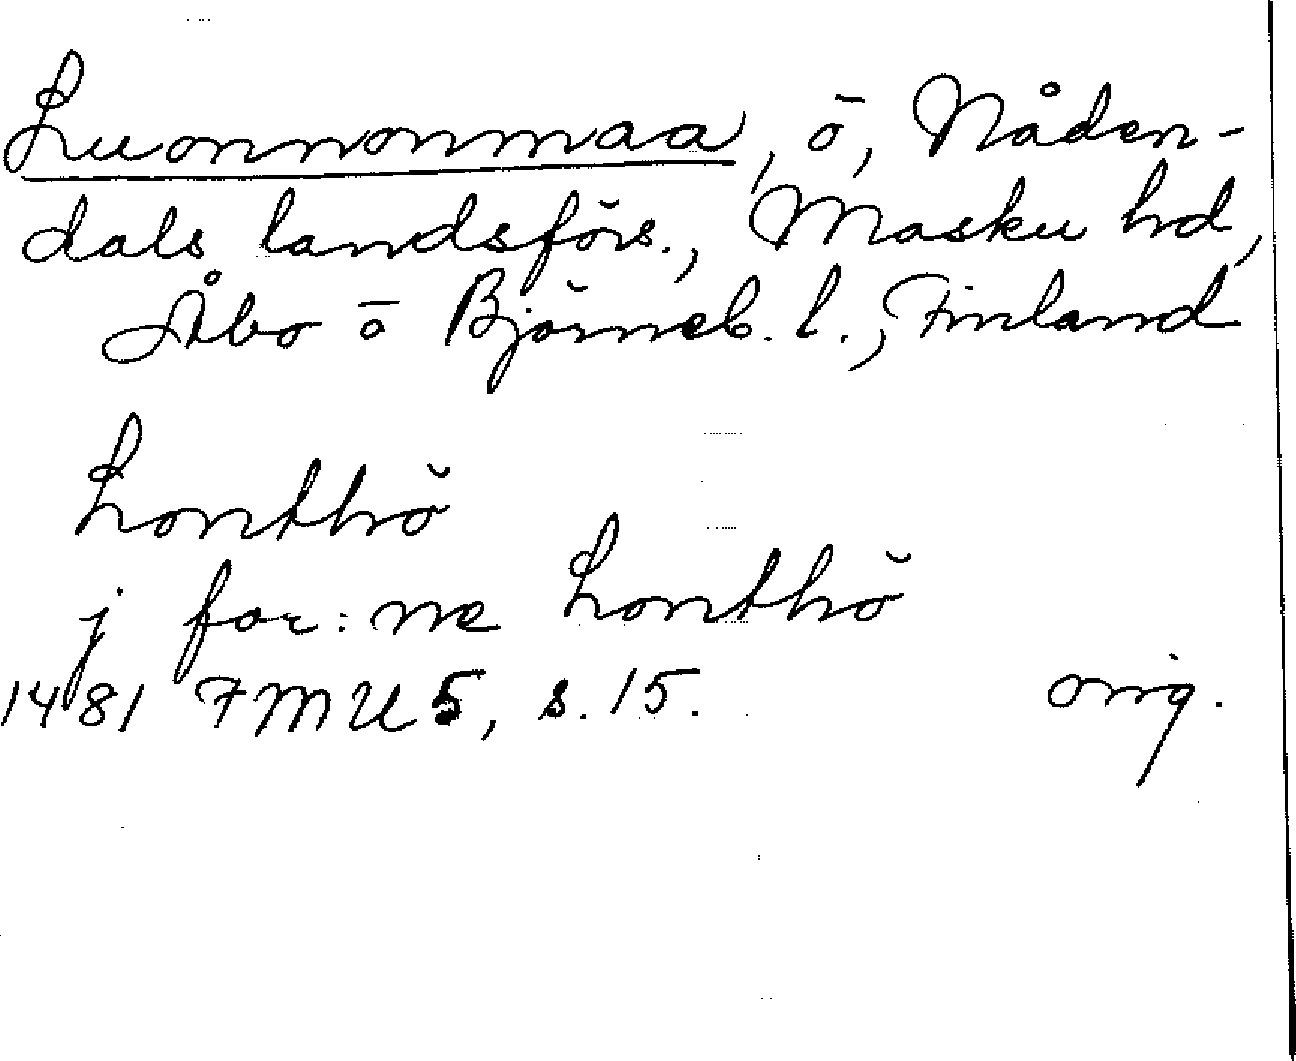 Luonnonmaa, ö, Nåden-
dals landsförs., Masku hd,
Åbo o Björneb. l., Finland
Lonthö
j for:ne Lonthö
1481 FMU 5, s. 15. orig.